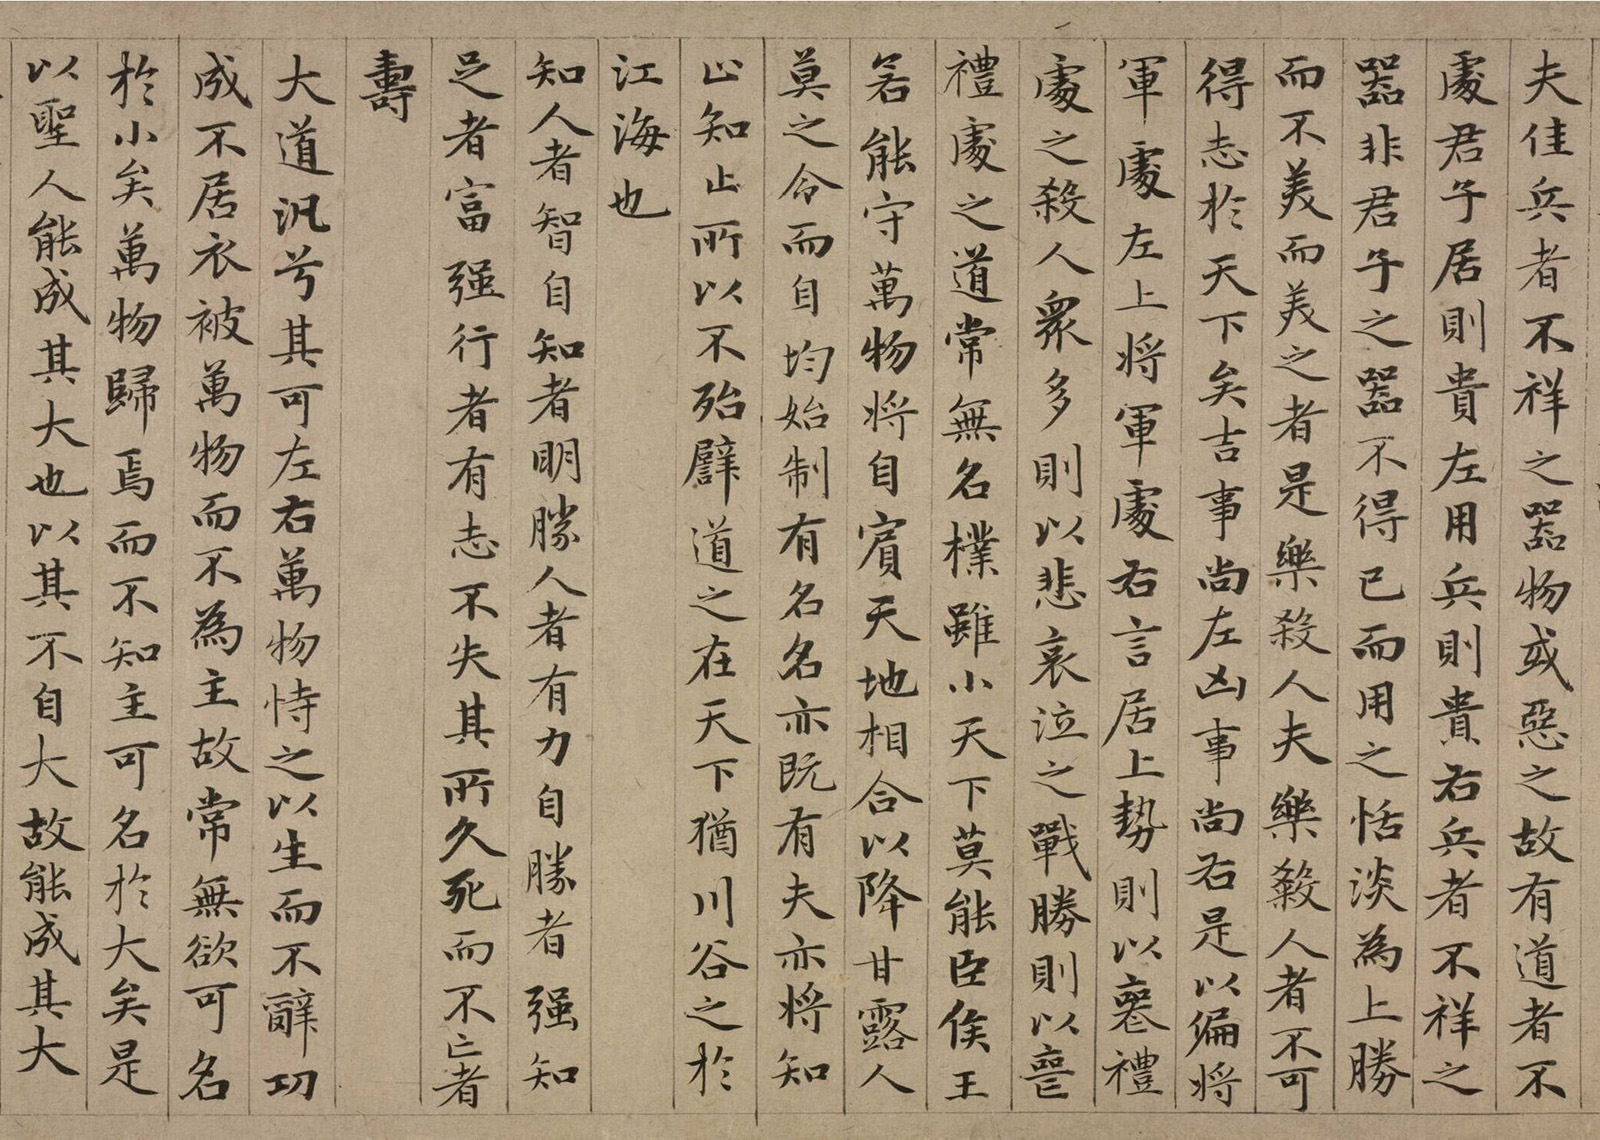 夫佳兵者不祥之器物或惡之故有道者不
處君子居則貴左用兵則貴右兵者不祥之
器非君子之器不得已而用之恬淡為上勝
而不美而美之者是樂殺人夫樂殺人者不可
得志於天下矣吉事尚左凶事尚右是以偏將
軍處左上將軍處右言居上勢則以喪禮
處之殺人眾多則以悲哀泣之戰勝則以喪
禮處之道常無名樸雖小天下莫能臣侯王
若能守萬物將自賓天地相合以降甘露人
莫之令而自均始制有名名亦既有夫亦將知
止知止所以不殆譬道之在天下猶川谷之於
江海也
知人者智自知者明勝人者有力自勝者强知
足者富强行者有志不失其所久死而不亡者
壽
大道汎兮其可左右萬物恃之以生而不辭功
成不居衣被萬物而不為主故常無欲可名
於小矣萬物歸焉而不知主可名於大矣是
以聖人能成其大也以其不自大故能成其大